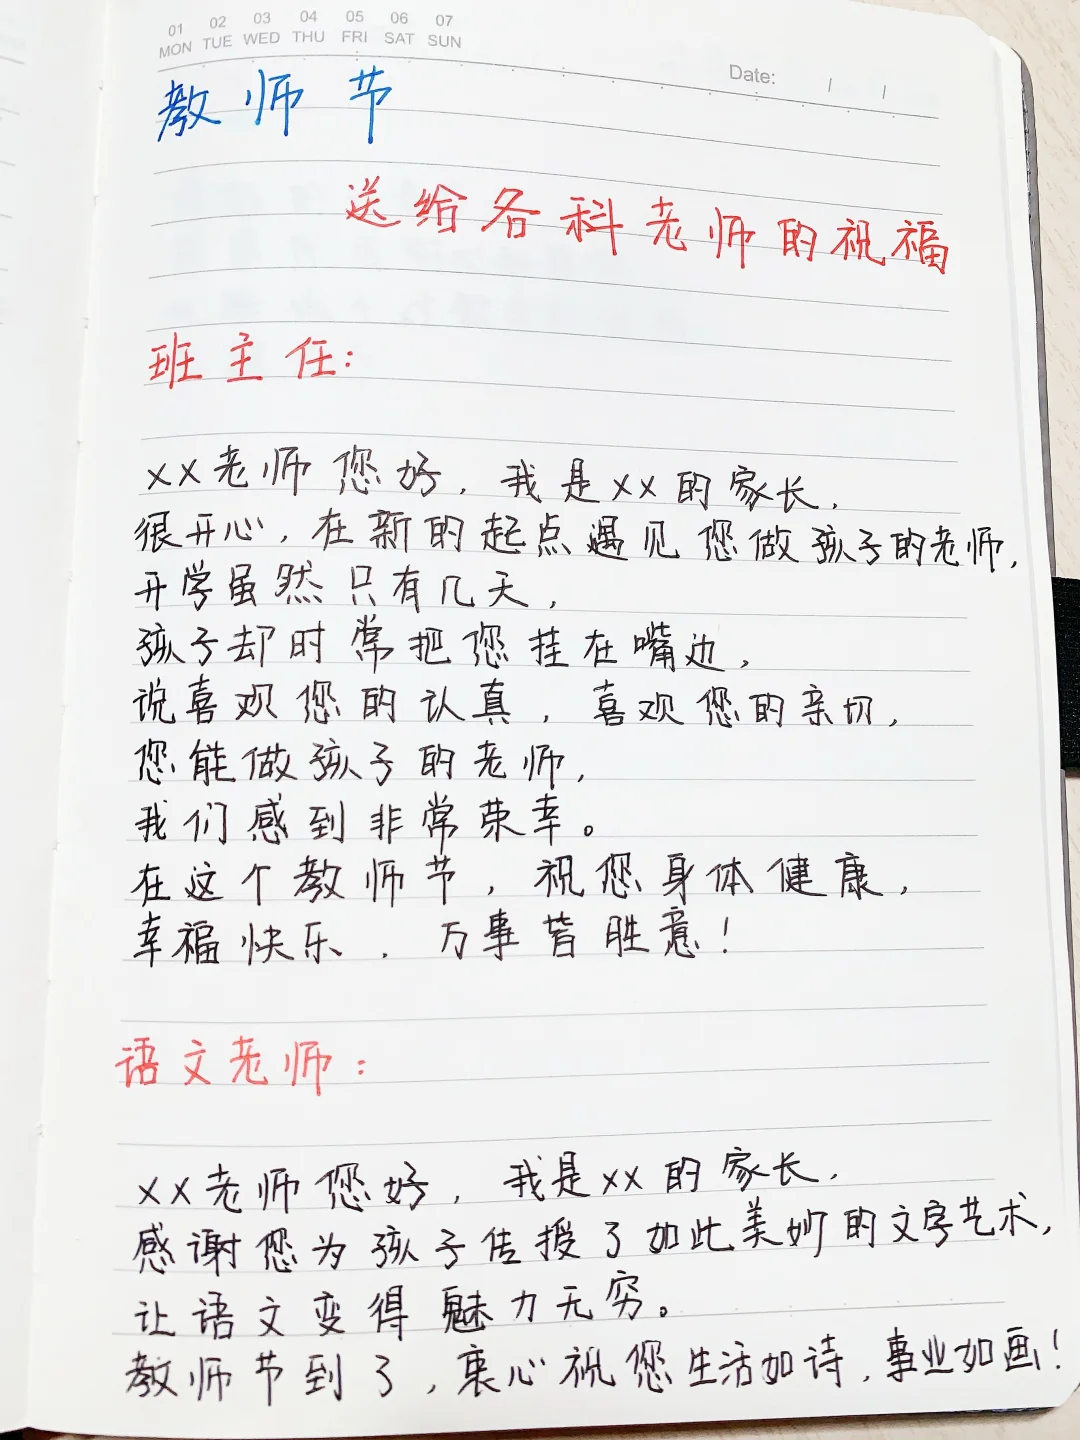 01 02 03 04 05 06 07
MON TUE WED THU FRI SAT SUN
Date: / /
教师节
送给各科老师的祝福
班主任:
××老师您好，我是××的家长，
很开心，在新的起点遇见您做孩子的老师，
开学虽然只有几天，
孩子却时常把您挂在嘴边，
说喜欢您的认真，喜欢您的亲切，
您能做孩子的老师，
我们感到非常荣幸。
在这个教师节，祝您身体健康，
幸福快乐，万事皆胜意！
语文老师：
××老师您好，我是××的家长，
感谢您为孩子传授了如此美妙的文字艺术，
让语文变得魅力无穷。
教师节到了，衷心祝您生活如诗，事业如画！